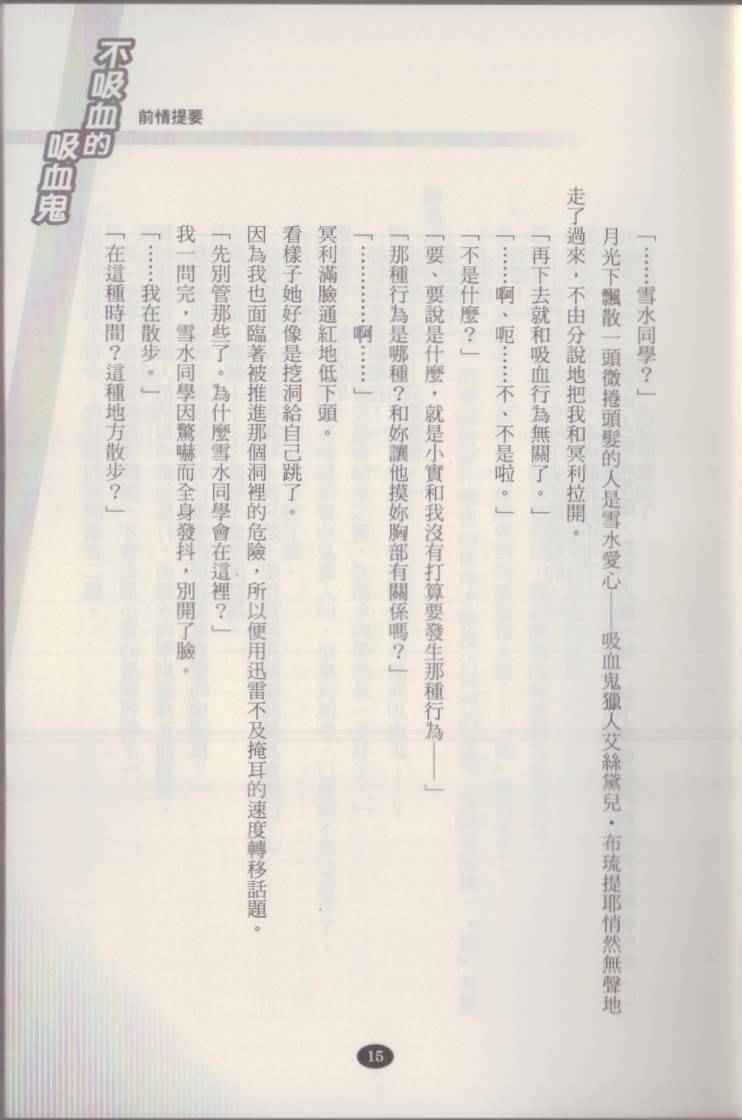 不吸血的
吸血鬼
前情提要
「……雪水同學？」
月光下飄散一頭微捲頭髮的人是雪水愛心——吸血鬼獵人艾絲黛兒・布琉提耶悄然無聲地
走了過來，不由分說地把我和冥利拉開。
「再下去就和吸血行為無關了。」
「……啊、呃……不、不是啦。」
「不是什麼？」
「要、要說是什麼，就是小實和我沒有打算要發生那種行為——」
「那種行為是哪種？和妳讓他摸妳胸部有關係嗎？」
「…………啊……」
冥利滿臉通紅地低下頭。
看樣子她好像是挖洞給自己跳了。
因為我也面臨著被推進那個洞裡的危險，所以便用迅雷不及掩耳的速度轉移話題。
「先別管那些了。為什麼雪水同學會在這裡？」
我一問完，雪水同學因驚嚇而全身發抖，別開了臉。
「……我在散步。」
「在這種時間？這種地方散步？」
15